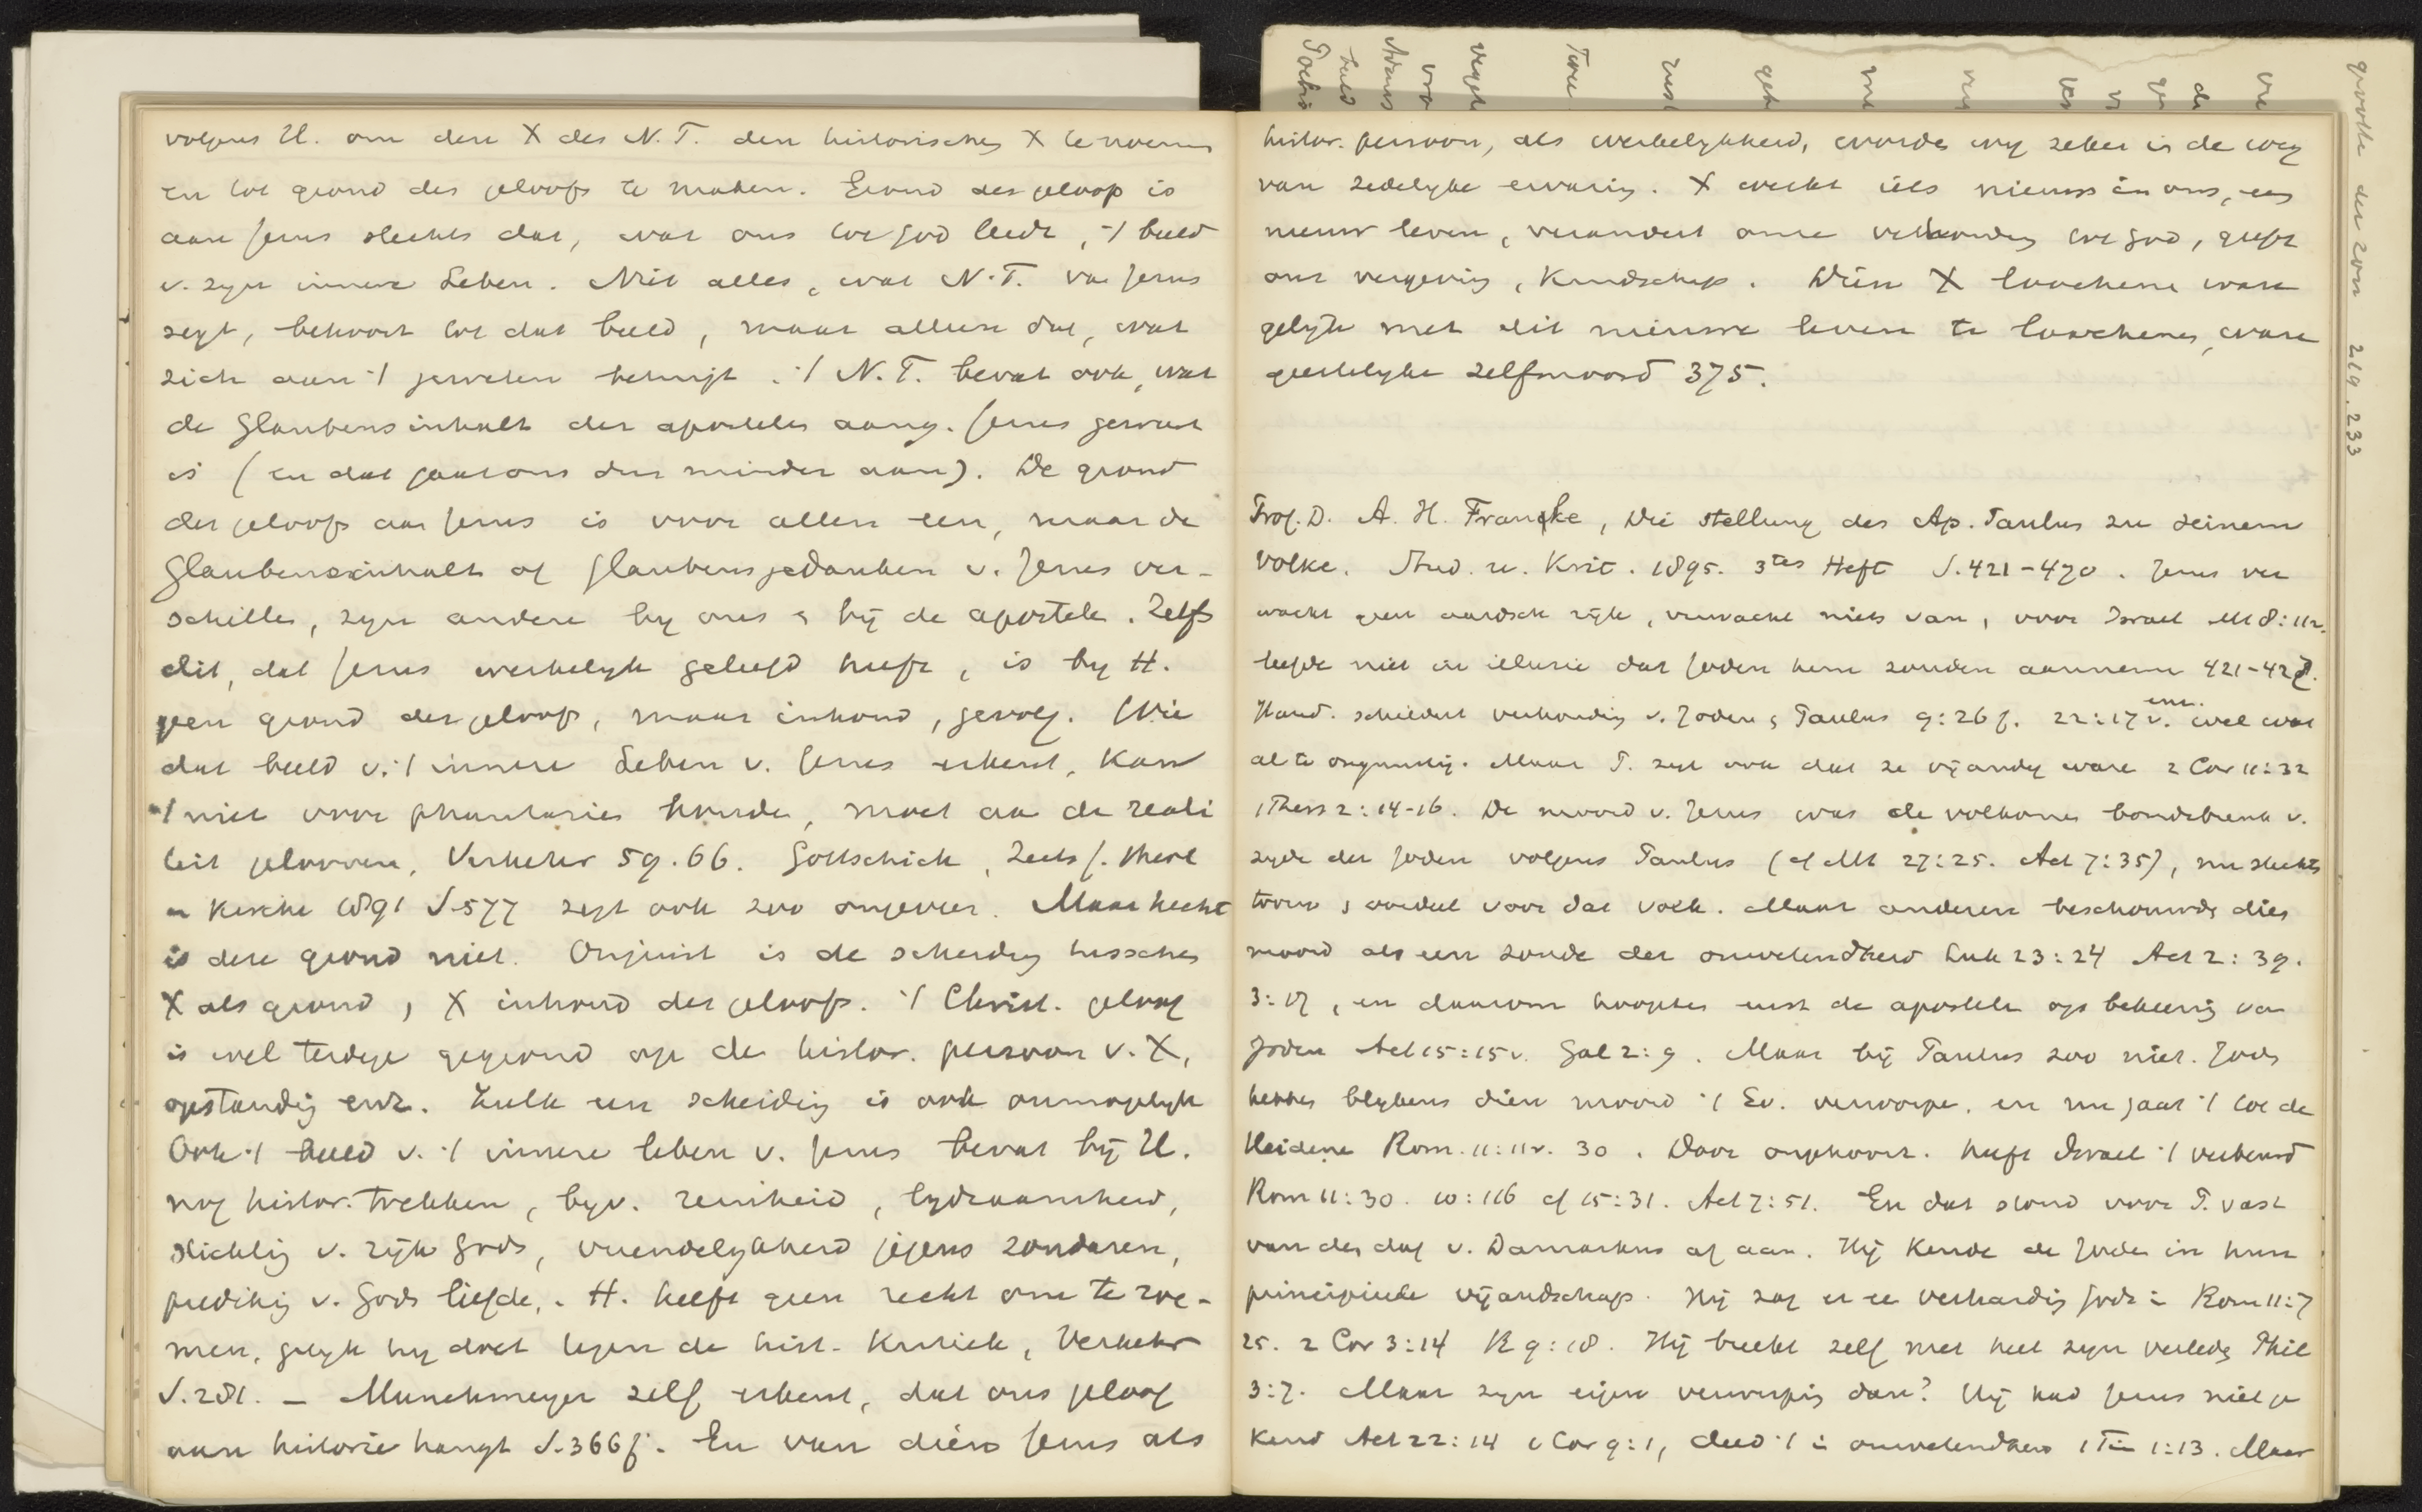 volgens H. om dere X des N.T. den historischen X te noemen
en tot grond des geloofs te maken. Grond des geloofs is
aan Jezus slechts dat, wat ons tot God leidt, 't beeld
v. zyn innere Leben. Niet alles, wat N.T. van Jezus
zegt, behoort tot dat beeld, maar alleen dat, wat
zich aan 't geweten betuigt. 't N.T. bevat ook, wat
de Glaubensinhalt der apostelen aang. Jezus geweest
is (en dat gaat ons dus minder aan). De grond
des geloofs aan Jezus is voor allen een, maar de
Glaubensinhalt of Glaubensgedanken v. Jezus ver-
schillen, zyn andere by ons & bij de apostelen. Zelfs
dit, dat Jezus werkelyk geleefd heeft, is by H.
geen grond des geloofs, maar inhoud, gevolg. Wie
dat beeld v. 't innere Leben v. Jezus erkent, kan
't niet voor phantasie houden, moet aan de reali
teit gelooven, Verkehr 59. 66. Gottschick, Zeits f. Theol
u Kirche 1891 S. 577 zegt ook zoo ongeveer. Maar hecht
is deze grond niet. Onjuist is de scheiding tusschen
X als grond, & X inhoud des geloofs. 't Christ. geloof
is wel terdege gegrond op de histor. persoon v. X,
opstanding enz. Zulk een scheiding is ook onmogelyk
Ook 't beeld v. 't innere leben v. Jezus bevat bij H.
nog histor. trekken, byv. reinheid, lydzaamheid,
stichting v. rijk Gods, vriendelykheid jegens zondaren,
prediking v. Gods liefde. H. heeft geen recht om te roe-
men, gelyk hy doet tegen de hist. Kritiek, Verkehr
S. 281. – Munchmeyer zelf erkent, dat ons geloof
aan historie hangt S. 366 f. En van dien Jezus als
histor. persoon, als werkelykheid, worden wy zeker in de weg
van zedelyke ervaring. X wekt iets nieuws in ons, een
nieuw leven, verandert onze verhouding tot God, geeft
ons vergeving, Kindschap. Dien X loochenen ware
gelyk met dit nieuwe leven te loochenen, ware
geestelyke zelfmoord 375.
Prof. D. A. H. Francke, Die Stellung des Ap. Paulus zu seinem
Volke. Stud. u. Krit. 1895. 3tes Heft S. 421-470. Jezus ver
wacht geen aardsch rijk, verwacht niets van, voor Israel Mt 8:11v.
leefde niet in illusie dat Joden hem zouden aannemen 421-428.
Hand. schildert verhouding v. Joden & Paulus 9:26 f. 22:17 v. enz. wel wat
al te ongunstig. Maar P. zegt ook dat ze vijandig waren 2 Cor 11:32
1 Thess 2:14-16. De moord v. Jezus was de volkomen bondsbreuk v.
zyde der Joden volgens Paulus (cf Mt 27:25. Act 7:35), nu slechts
toorn & oordeel voor dat volk. Maar anderen beschouwden dien
moord als een zonde der onwetendheid Luk 23:24 Act 2:39.
3:17, en daarom hoopten eerst de apostelen op bekeering van
Joden Act 15:15v. Gal 2:9. Maar bij Paulus zoo niet. Joden
hebben blykens dien moord 't Ev. verworpen, en nu gaat 't tot de
Heidenen Rom. 11:11v. 30. Door ongehoorz. heeft Israel 't verbeurd
Rom 11:30. 10:16 cf 15:31. Act 7:51. En dat stond voor P. vast
van den dag v. Damaskus af aan. Hij kende de Joden in hun
principieele vijandschap. Hij zag er een verharding Gods in Rom 11:7
25. 2 Cor 3:14 R 9:18. Hij breekt zelf met heel zyn verleden Phil
3:7. Maar zyn eigen verwerping dan? Hij had Jezus niet ge
kend Act 22:14 1 Cor 9:1, deed 't in onwetendheid 1 Tim 1:13. Maar